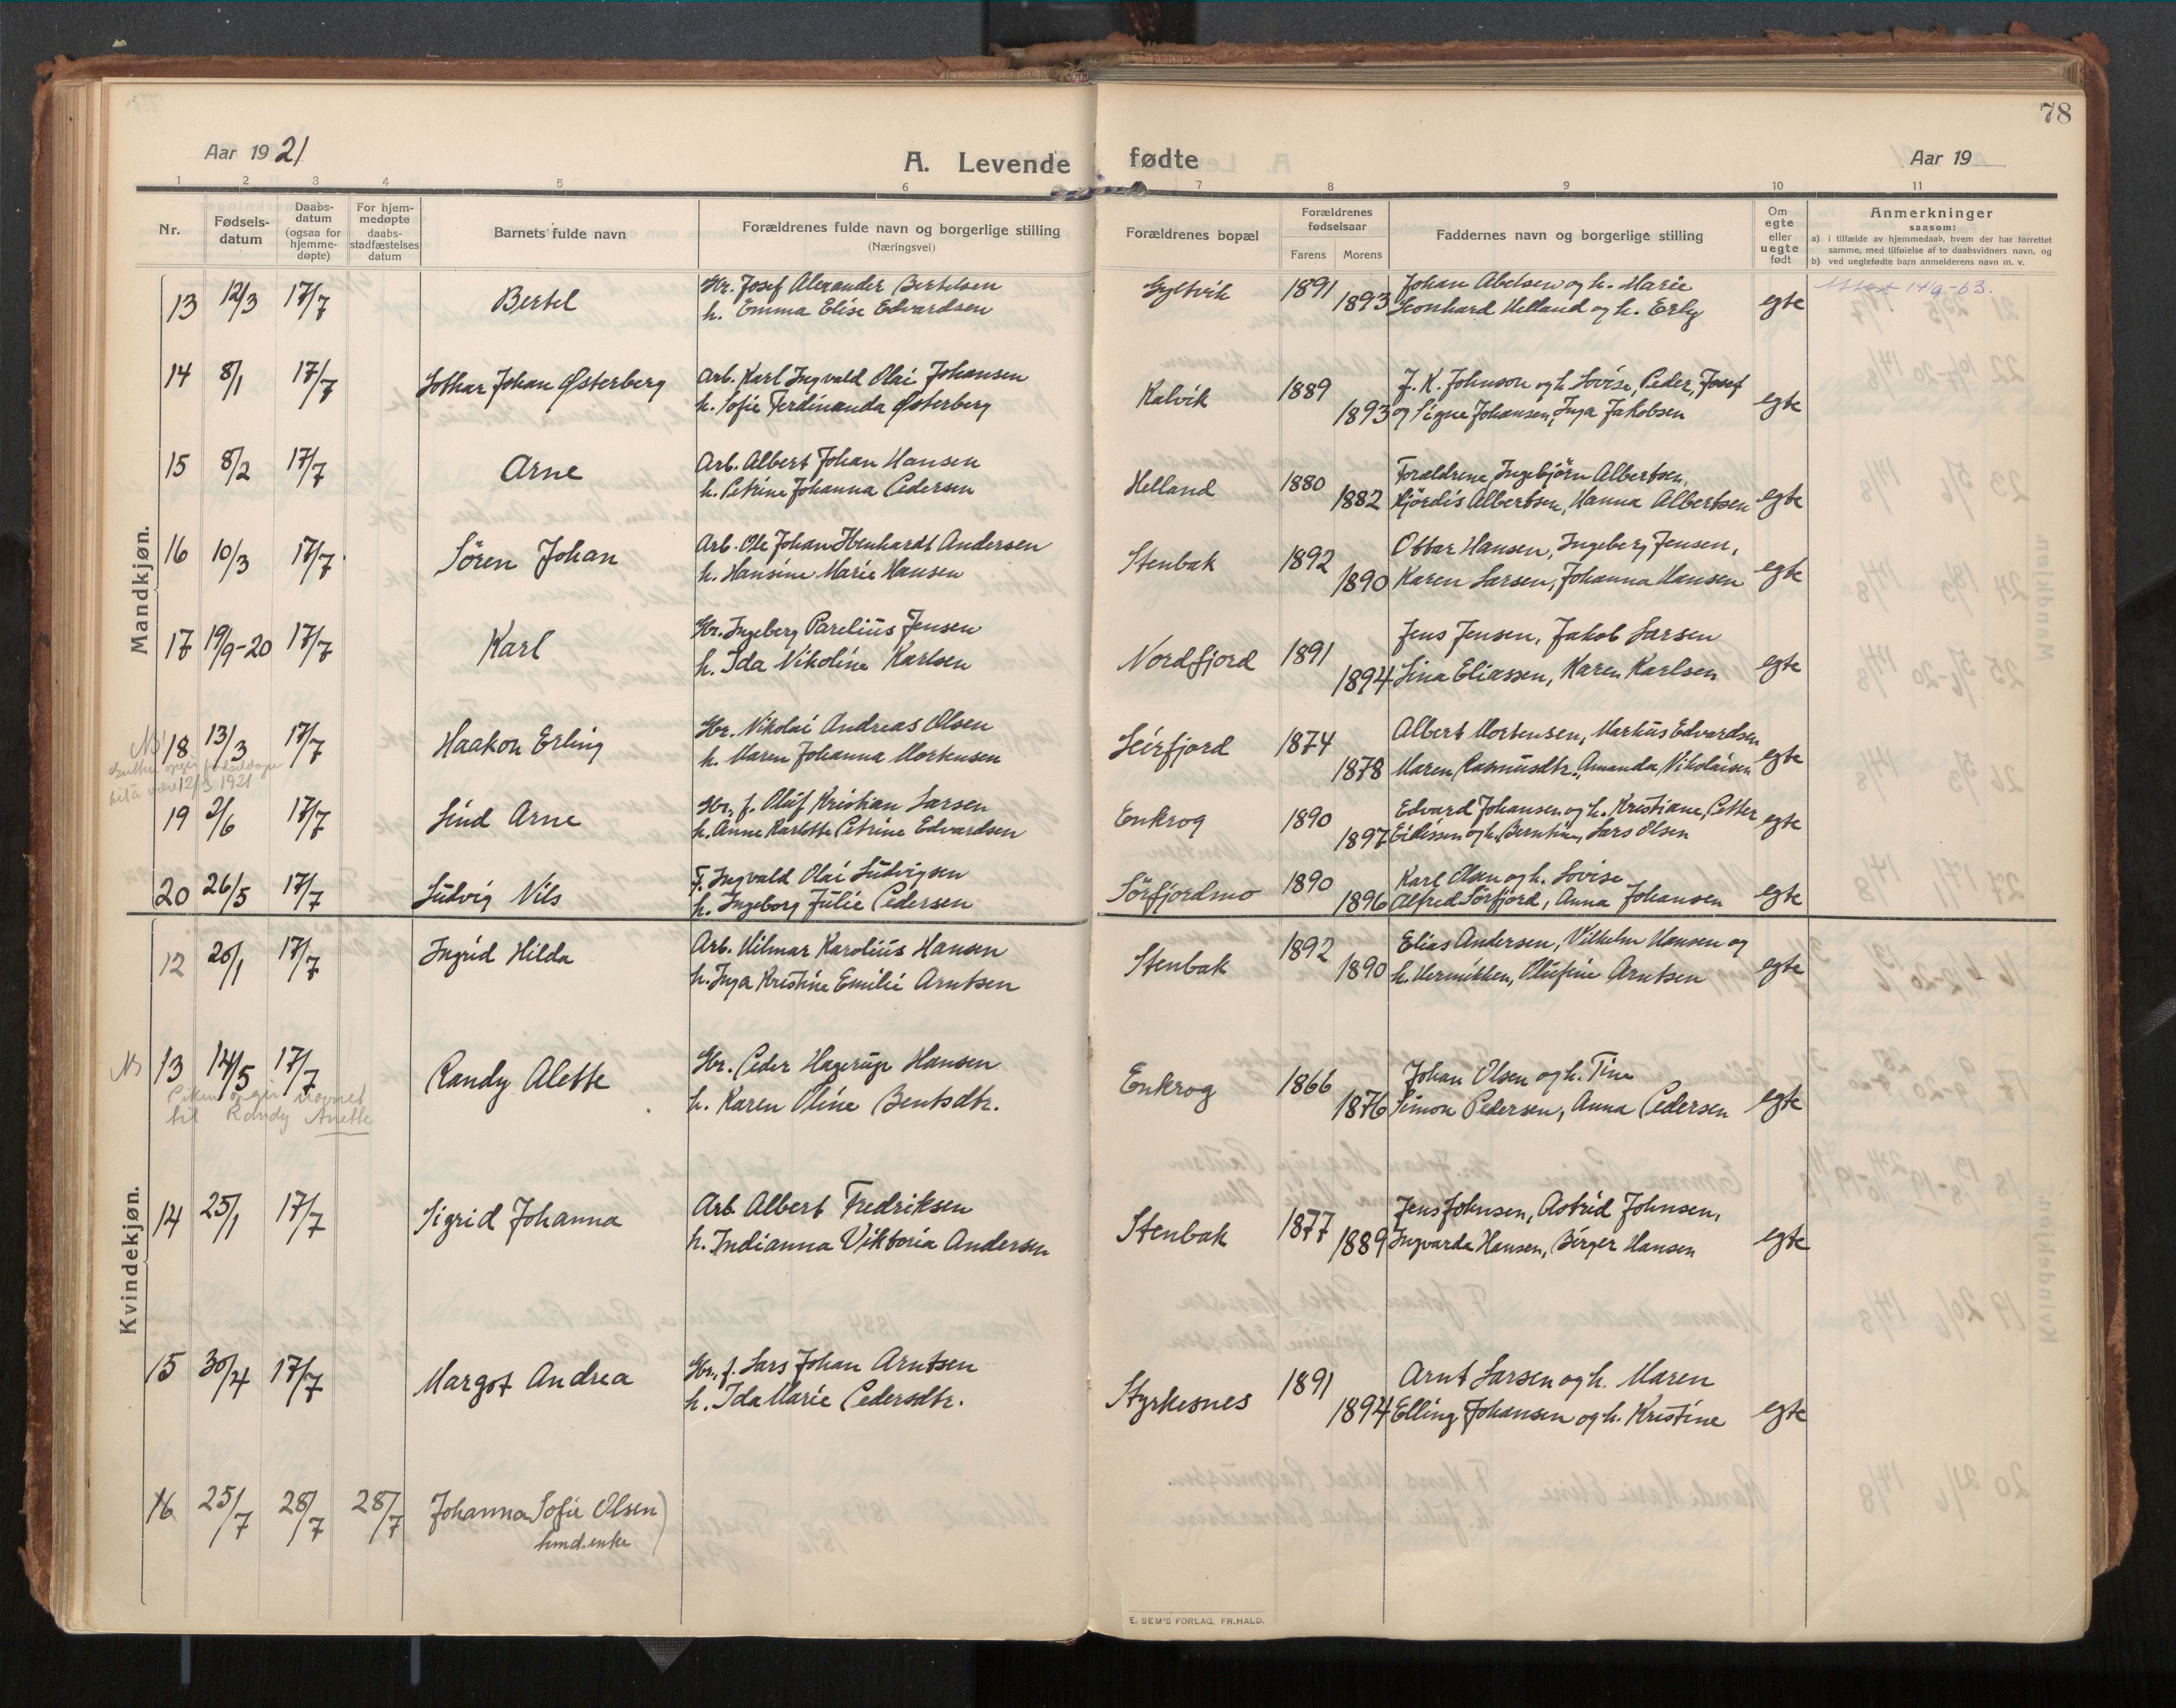 78
Aar 1921
A. Levende fødte
Aar 19
1 2 3 4 5 6 7 8 9 10 11
Nr.
Fødsels-
datum
Daabs-
datum
(ogsaa for
hjemme-
døpte)
For hjem-
medøpte
daabs-
stadfæstelses
datum
Barnets fulde navn
Forældrenes fulde navn og borgerlige stilling
(Næringsvei)
Forældrenes bopæl
Forældrenes
fødselsaar
Farens Morens
Faddernes navn og borgerlige stilling
Om
egte
eller
uegte
født
Anmerkninger
saasom:
a) i tilfælde av hjemmedaab, hvem der har forrettet
samme, med tilføielse af to daabsvidners navn, og
b) ved uegtefødte barn anmelderens navn m. v.
Mandkjøn.
13 12/3 17/7 Bertel Gbr. Josef Alexander Bertelsen Gyltvik 1891 Johan Abelsen og h. Marie egte 14/9-63.
h. Emma Elise Edvardsen 1893 Leonhard Helland og h. Erly
14 8/1 17/7 Lothar Johan Østerberg Arb. Karl Ingvald Olai Johansen Kalvik 1889 J. K. Johnson og h. Lovise, Peder, Josef egte
h. Sofie Ferdinanda Østerberg 1893 og Signe Johansen, Inga Jakobsen
15 8/2 17/7 Arne Arb. Albert Johan Hansen Helland 1880 Forældrene, Ingebjörn Albertsen, egte
h. Petrine Johanna Pedersen 1882 Hjördis Albertsen, Hanna Albertsen
16 10/3 17/7 Sören Johan Arb. Ole Johan Henhardt Andersen Stenbak 1892 Ottar Hansen, Ingeberg Jensen, egte
h. Hansine Marie Hansen 1890 Karen Larsen, Johanna Hansen
17 19/9-20 17/7 Karl Gbr. Ingeberg Parelius Jensen Nordfjord 1891 Jens Jensen, Jakob Larsen egte
h. Ida Nikoline Karlsen 1894 Lina Eliassen, Karen Karlsen
18 13/3 17/7 Haakon Erling Gbr. Nikolai Andreas Olsen Leirfjord 1874 Albert Mortensen, Markus Edvardsen egte
h. Maren Johanna Mortensen 1878 Maren Rasmusdtr., Amanda Nikolaisen
opgir fødselsdage
til å være 12/3 1921
19 2/6 17/7 Lind Arne Gbr., f. Oluf Kristian Larsen Enkrog 1890 Edvard Johansen og h. Kristiane, Petter egte
h. Anne Karlotte Petrine Edvardsen 1897 Eidissen og h. Berntine, Lars Olsen
20 26/5 17/7 Ludvig Nils F. Ingvald Olai Ludvigsen Sörfjordmo 1890 Karl Olsen og h. Lovise egte
h. Ingeborg Julie Pedersen 1896 Alfred Sörfjord, Anna Johansen
Kvindekjøn.
12 20/1 17/7 Ingrid Hilda Arb. Hilmar Karolius Hansen Stenbak 1892 Elias Andersen, Vilhelm Hansen og egte
h. Inga Kristine Emilie Arntsen 1890 h. Hermikken, Olufine Arntsen
13 14/5 17/7 Randy Alette Gbr. Peder Hagerup Hansen Enkrog 1866 Johan Olsen og h. Tine egte
h. Karen Oline Bentsdtr. 1876 Simon Pedersen, Anna Pedersen
Piken opgir navnet
til Randy Anette
14 25/1 17/7 Sigrid Johanna Arb. Albert Fredriksen Stenbak 1877 Jens Johnsen, Astrid Johnsen, egte
h. Indianna Viktoria Andersen 1889 Ingvarda Hansen, Birger Hansen
15 30/4 17/7 Margot Andrea Gbr., f. Lars Johan Arntsen Styrkesnes 1891 Arnt Larsen og h. Maren egte
h. Ida Marie Pedersdtr. 1894 Elling Johansen og h. Kristine
16 25/7 28/7 28/7 Johanna Sofie Olsen)
E. SEM'S FORLAG, FR.HALD.